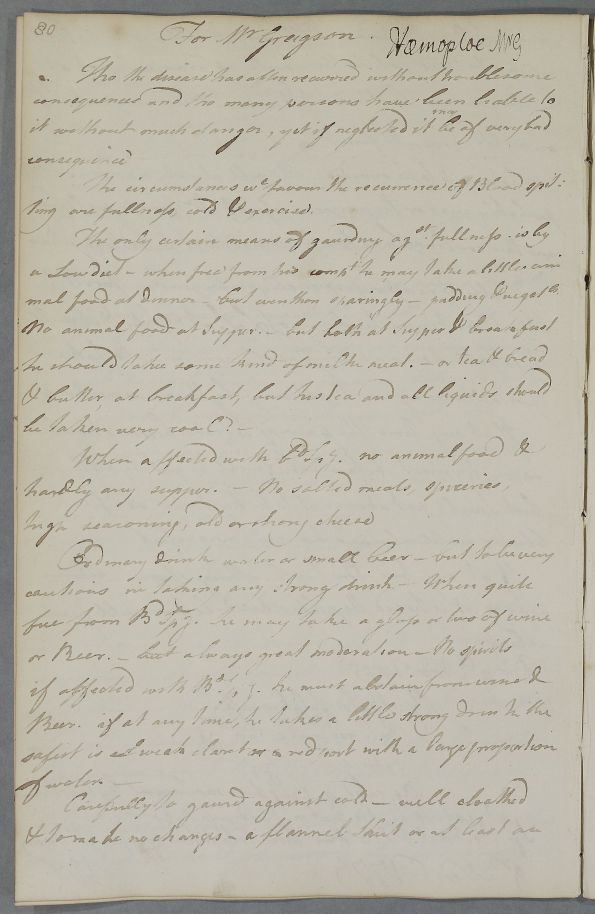 80
For Mr Gregson. Hæmoptoe Mr G
Tho the disease has often recurred without troublesome
consequences and tho many persons have been liable to
it without much danger, yet if neglected it may be of very bad
consequence
The circumstances wc favour the recurrence of Blood spit-
ting are fullness, cold & exercise.
The only certain means of gaurding agst fullness is by
a Low diet - when free from his compt he may take a little ani
mal food at dinner - but even then sparingly - pudding & vegetbs
No animal food at Supper. - but both at Supper & breakfast
he should take some kind of milk meat. - or tea & bread
& butter, at breakfast, but his tea and all liquids should
be taken very cool. -
When affected with Bd Spg. no animal food &
hardly any supper. - No salted meats, spiceries,
high seasoning, old or strong cheese
Ordinary drink water or small beer - but to be very
cautious in taking any strong drink - When quite
free from Bd Spg. he may take a glass or two of wine
or Beer. - but always great moderation - No spirits
if affected with Bd Spg. he must abstain from wine &
Beer. if at any time, he takes a little strong drink the
safest is weak claret or red port with a large proportion
of water. -
Carefully to gaurd against cold - well cloathed
& to make no changes - a flannel shirt or at least an